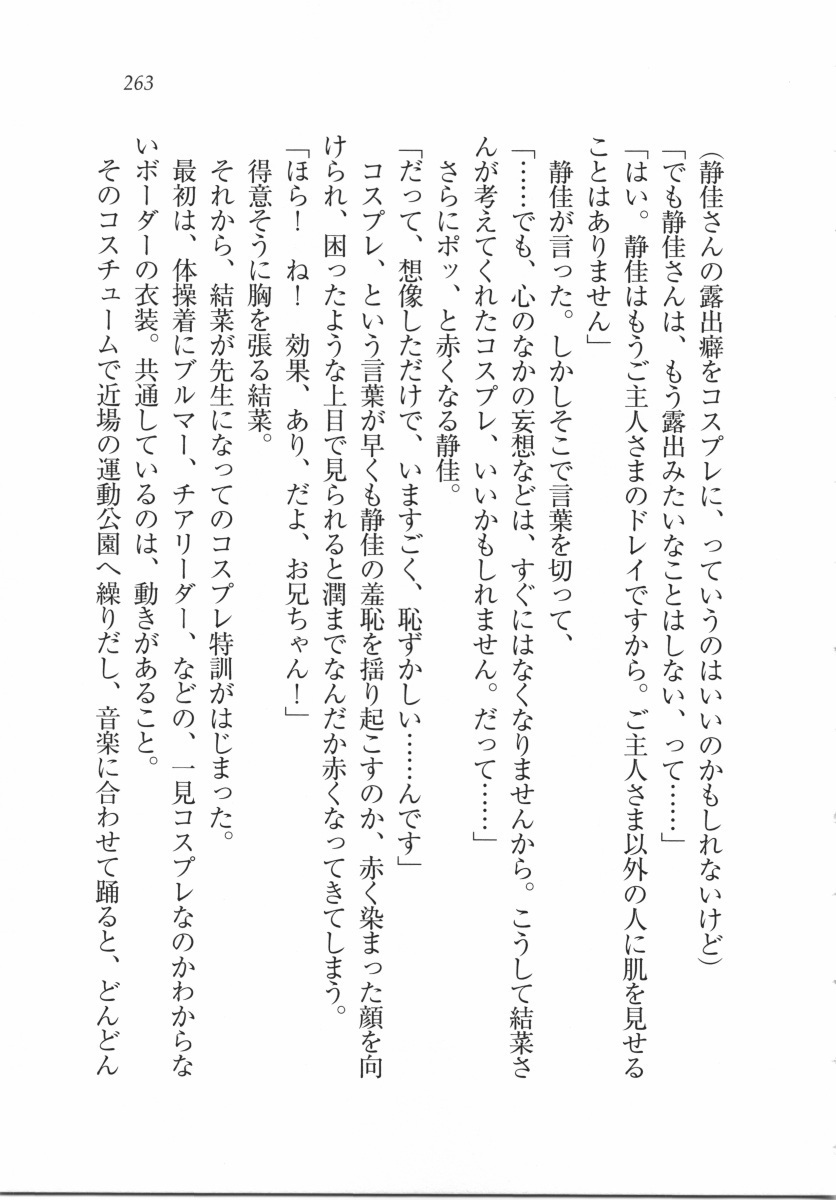 263
(静佳さんの露出癖をコスプレに、っていうのはいいのかもしれないけど)
「でも静佳さんは、もう露出みたいなことはしない、って……」
「はい。静佳はもうご主人さまのドレイですから。ご主人さま以外の人に肌を見せる
ことはありません」
静佳が言った。しかしそこで言葉を切って、
「……でも、心のなかの妄想などは、すぐにはなくなりませんから。こうして結菜さ
んが考えてくれたコスプレ、いいかもしれません。だって……」
さらにポッ、と赤くなる静佳。
「だって、想像しただけで、いますごく、恥ずかしい……んです」
コスプレ、という言葉が早くも静佳の羞恥を揺り起こすのか、赤く染まった顔を向
けられ、困ったような上目で見られると潤までなんだか赤くなってきてしまう。
「ほら！　ね！　効果、あり、だよ、お兄ちゃん！」
得意そうに胸を張る結菜。
それから、結菜が先生になってのコスプレ特訓がはじまった。
最初は、体操着にブルマー、チアリーダー、などの、一見コスプレなのかわからな
いボーダーの衣装。共通しているのは、動きがあること。
そのコスチュームで近場の運動公園へ繰りだし、音楽に合わせて踊ると、どんどん